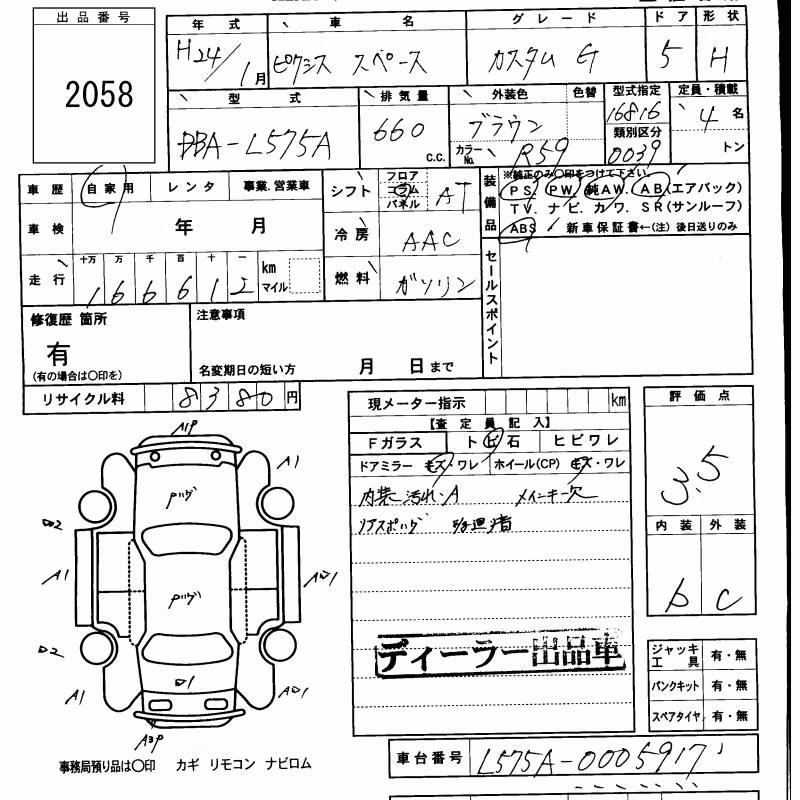 出品番号
2058
年式 車名 グレード ドア 形状
H24/1月 ピクシス スペース カスタム G 5 H
型式 排気量 外装色 色替 型式指定 定員・積載
DBA-L575A 660 c.c. ブラウン 16816 4名
カラーNo. R59 類別区分 0039 トン
車歴 自家用 レンタ 事業.営業車
車検 年 月
走行 十万 万 千 百 十 一 km マイル
166612
シフト フロア コラム パネル AT
冷房 AAC
燃料 ガソリン
装備品 ※純正のみ○印をつけて下さい。
PS PW 純AW. AB(エアバック)
TV. ナビ. カワ. SR(サンルーフ)
ABS 新車保証書←(注) 後日送りのみ
セールスポイント
修復歴 箇所
有
(有の場合は○印を)
注意事項
名変期日の短い方 月 日まで
リサイクル料 8380円
現メーター指示 km
【査定員記入】
Fガラス トビ石 ヒビワレ
ドアミラー キズ・ワレ ホイール(CP) キズ・ワレ
内装 汚れ.A メインキー欠
評価点
3.5
内装 外装
b C
A1P
A1
A1
A1
A1
A3P
ディーラー出品車
ジャッキ工具 有・無
パンクキット 有・無
スペアタイヤ 有・無
車台番号 L575A-0005917
事務局預り品は○印 カギ リモコン ナビロム